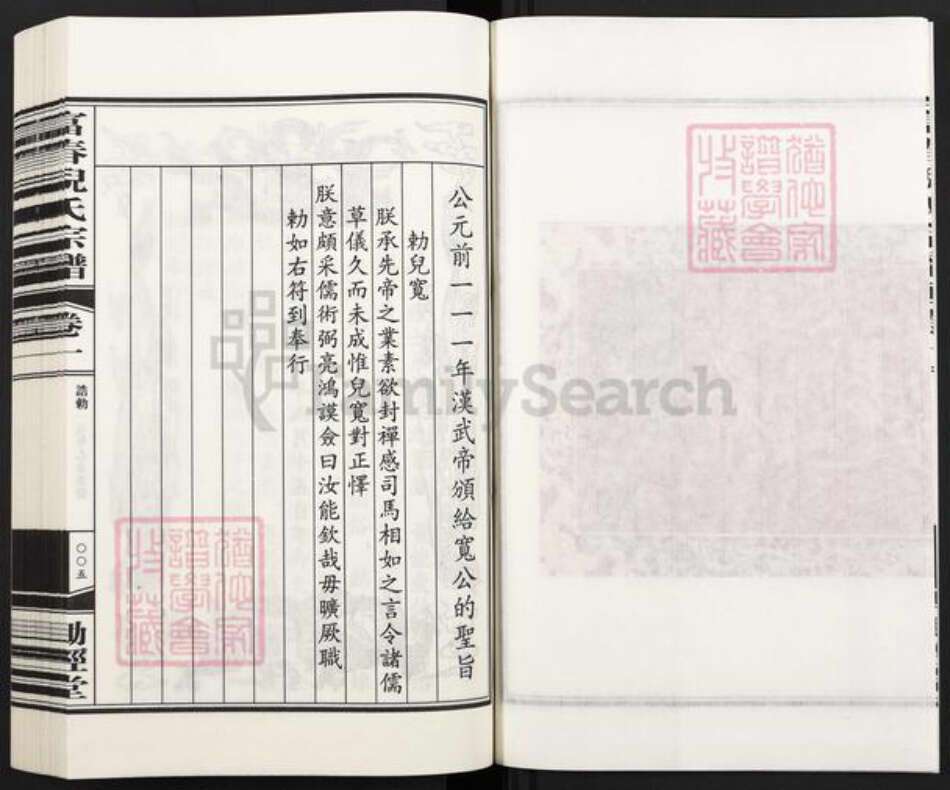 公元前一一一年漢武帝頒給寬公的聖旨
勅兒寬
朕承先帝之業素欲封禪感司馬相如之言令諸儒
草儀久而未成惟兒寬對正懌
朕意頗采儒術弼亮鴻謨僉曰汝能欽哉毋曠厥職
勅如右符到奉行
富春倪氏宗譜
卷一
誥勅
〇〇五
勤經堂
FamilySearch